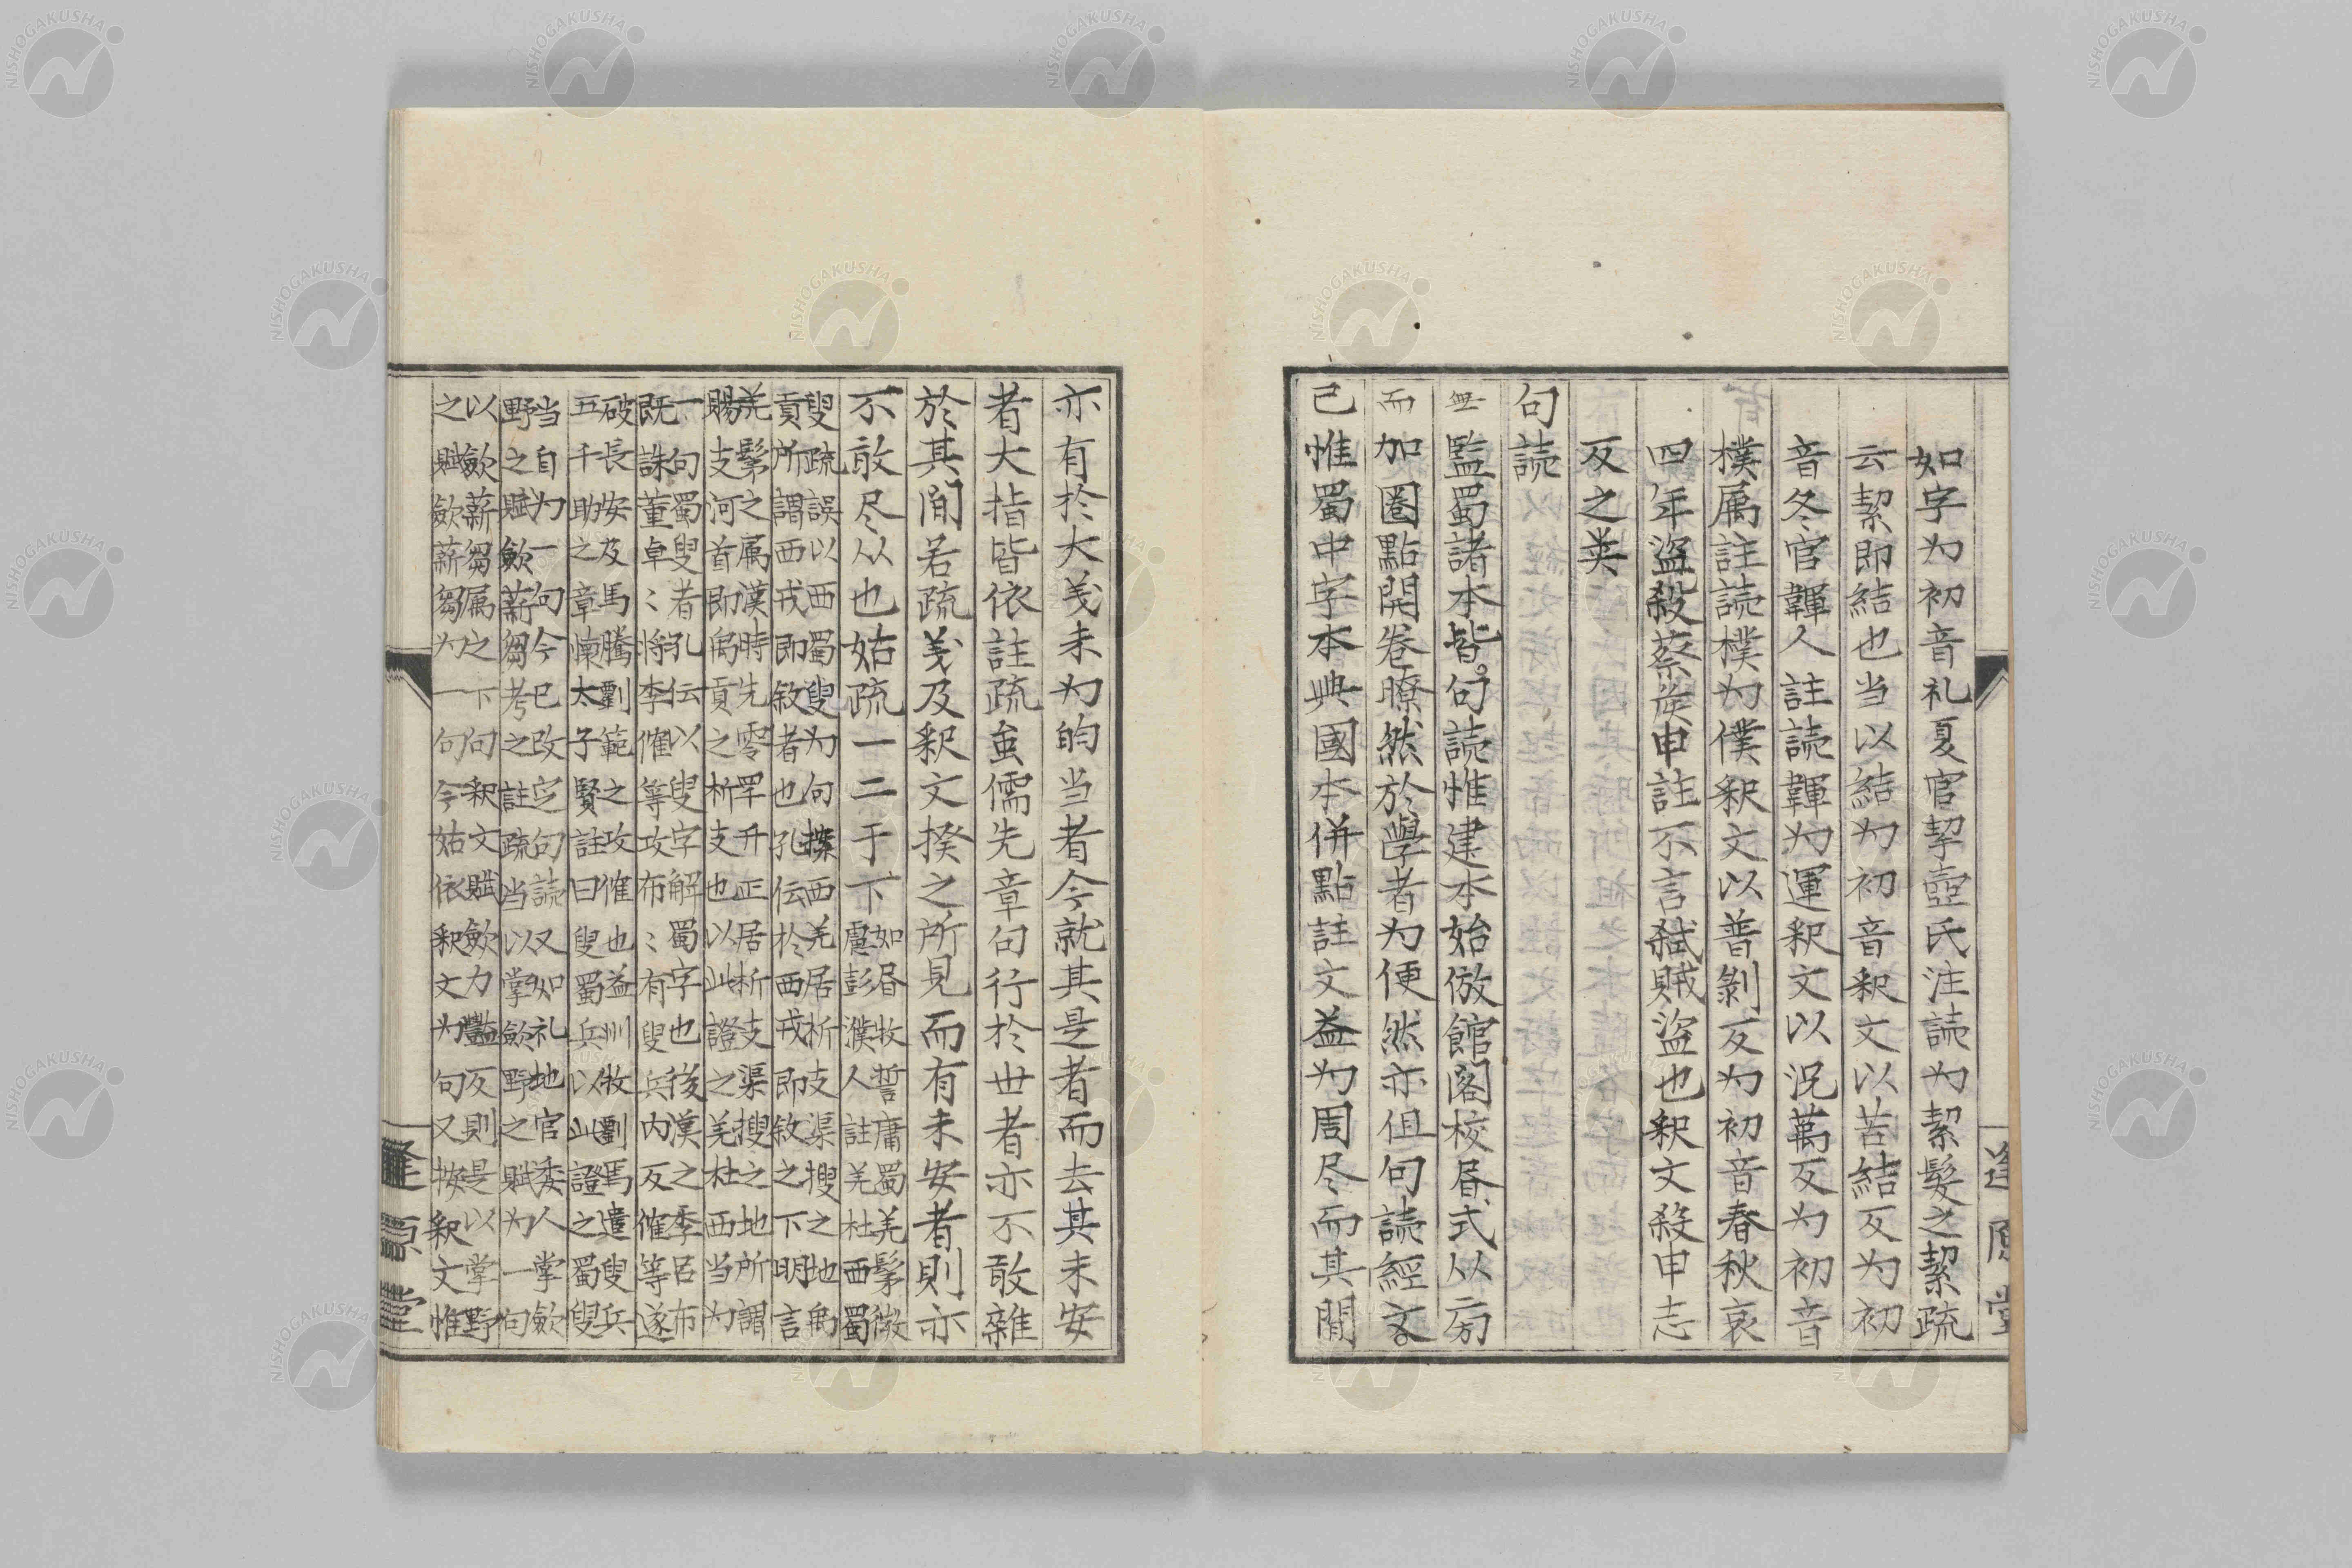 如字为初音礼夏官挈壺氏注読为絜髮之絜疏
云絜即結也当以結为初音釈文以苦結反为初
音冬官韗人註読韗为運釈文以況萬反为初音
樸属註読樸为僕釈文以普剝反为初音春秋哀
四年盜殺蔡侯申註不言弑賊盜也釈文殺申志
反之类
句読
監蜀諸本皆
無
句読惟建本始倣館閣校㫺式以㫄
而加圈點開卷瞭然於學者为便然亦但句読經文
已惟蜀中字本興國本併點註文益为周尽而其間
逢原堂
亦有於大义未为的当者今就其是者而去其未安
者大指皆依註疏虽儒先章句行於世者亦不敢雜
於其間若疏义及釈文揆之所見而有未安者則亦
不敢尽从也姑疏一二于下
如㫺牧誓庸蜀羌髳微
盧彭濮人註羌杜西蜀
叟疏誤以西蜀叟为句揲西羌居析支渠搜之地禹
貢所謂西戎即敘者也孔伝於西戎即敘之下明言
羌髳之属漢時先零罕幵正居析支渠搜之地所謂
賜支河首即禹貢之析支也以此證之羌杜西当为
一句蜀叟者孔伝以叟字解蜀字也後漢之季呂布
既誅董卓〻将李傕等攻布〻有叟兵内反傕等遂
破長安及馬騰劉範之攻傕也益州牧劉焉遣叟兵
五千助之章懐太子賢註曰叟蜀兵以此證之蜀叟
当自为一句今已改定句読又如礼地官委人掌歛
野之賦歛薪芻考之註疏当以掌歛野之賦为一句
以歛薪芻属之下句釈文賦歛力豔反則是以掌野
之賦歛薪芻为一句今姑依釈文为句又按釈文惟
逢原堂